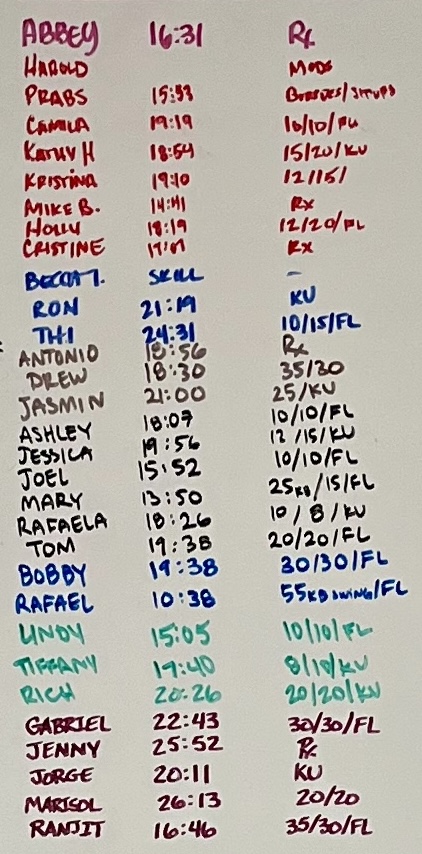 ABBEY 16:31 Rx
HAROLD MODS
PRABS 15:53 BURPEES/SITUPS
CAMILA 19:19 10/10/FL
KATHY H 18:54 15/20/KU
KRISTINA 19:10 12/15/
MIKE B. 14:41 Rx
HOLLY 18:19 12/20/FL
CRISTINE 17:07 Rx
BECCA T. SKILL –
RON 21:19 KU
THI 24:31 10/15/FL
ANTONIO 18:56 Rx
DREW 18:30 35/30
JASMIN 21:00 25/KU
ASHLEY 18:07 10/10/FL
JESSICA 19:56 12/15/KU
JOEL 15:52 10/10/FL
MARY 13:50 25KB/15/FL
RAFAELA 18:26 10/8/KU
TOM 19:38 20/20/FL
BOBBY 19:38 30/30/FL
RAFAEL 10:38 55KB SWING/FL
LINDY 15:05 10/10/FL
TIFFANY 19:40 8/10/KU
RICH 20:26 20/20/KU
GABRIEL 22:43 30/30/FL
JENNY 25:52 Rx
JORGE 20:11 KU
MARISOL 26:13 20/20
RANJIT 16:46 35/30/FL